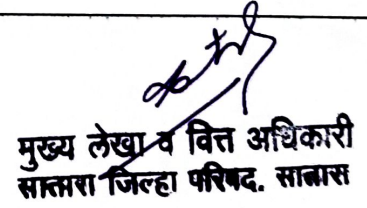 मुख्य लेखा व वित्त अधिकारी
सातारा जिल्हा परिषद. सातारा